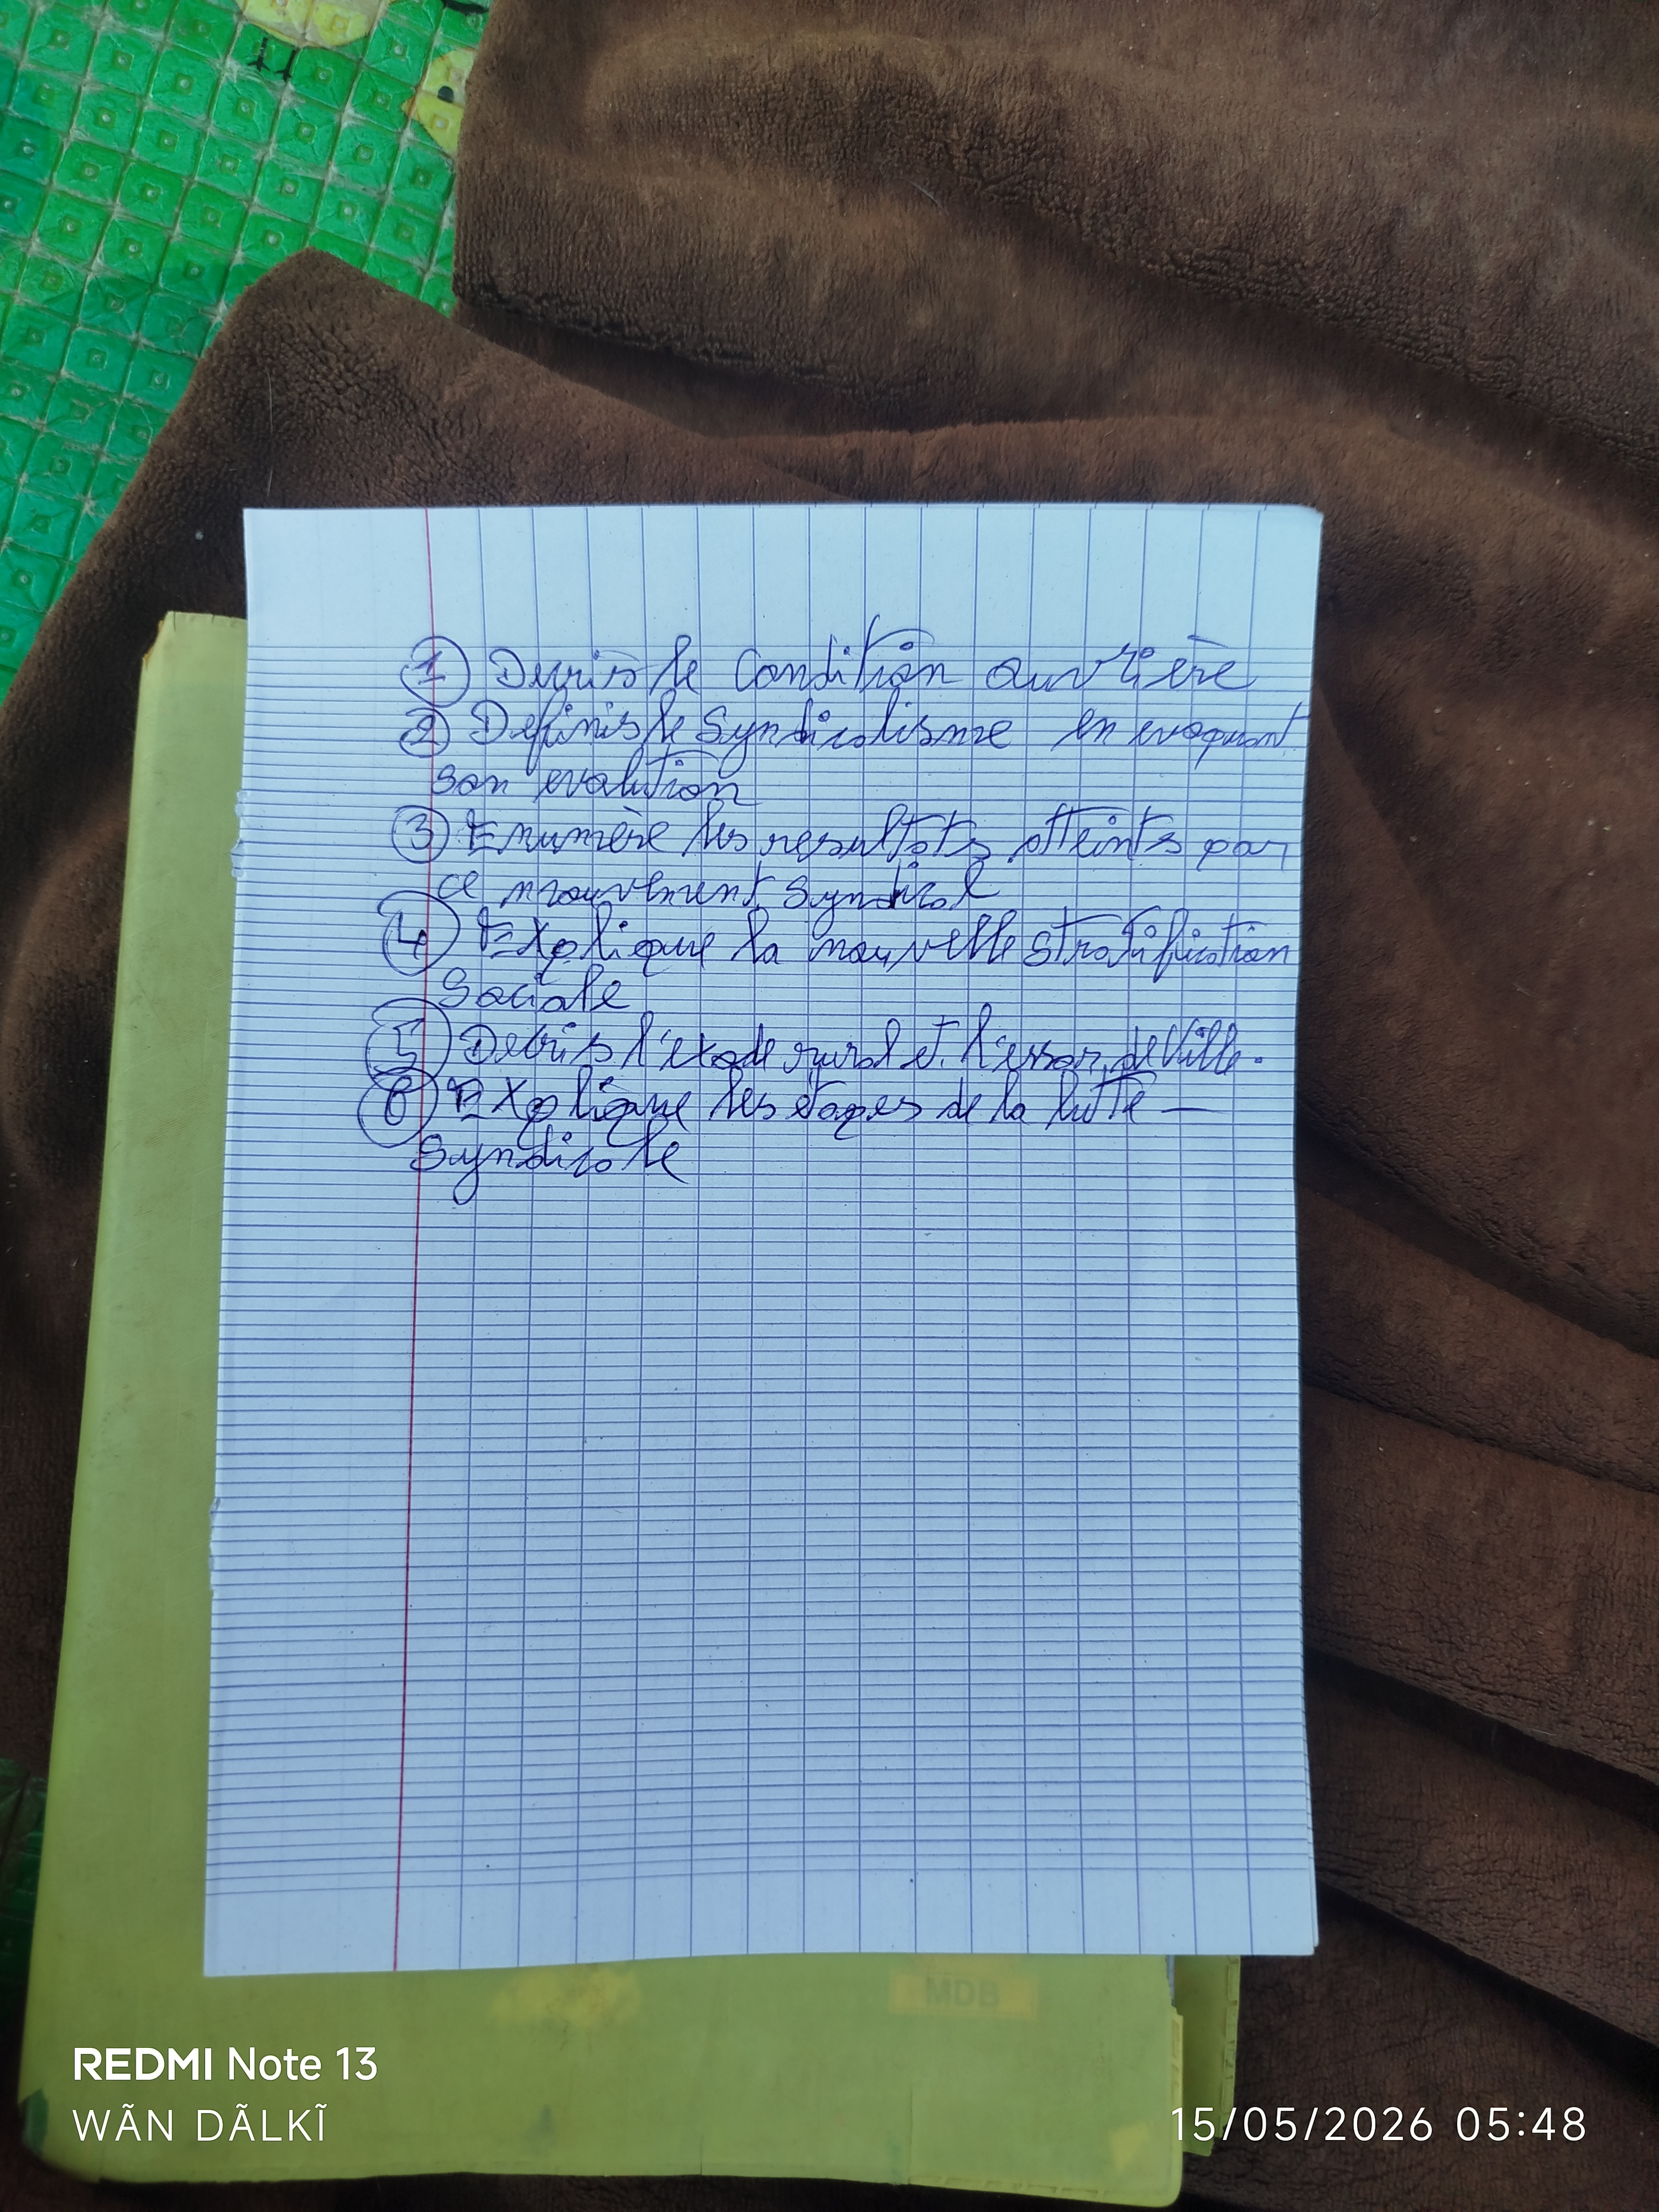 ① Decris le Condition ouvrière
② Definis le Syndicalisme en evoquant
son evolution
③ Enumère les resultats atteints par
ce mouvement syndical
④ Explique la nouvelle stratification
Sociale
⑤ Decris l'exode rural et l'essor de Ville.
⑥ Explique les étapes de la lutte —
Syndicale
MDB
REDMI Note 13
WÃN DÃLKĨ
15/05/2026 05:48